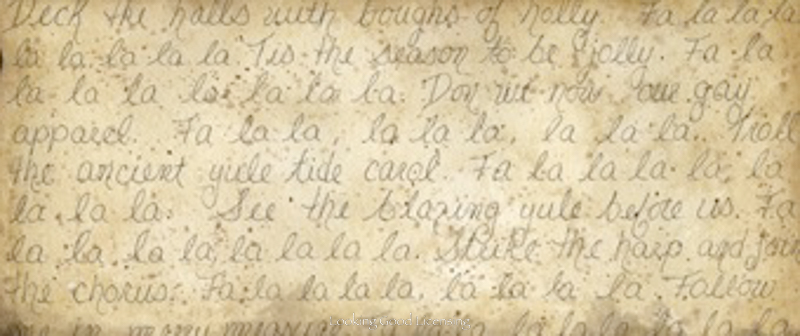 Deck the halls with boughs of holly. Fa la la la
la la la la la Tis the season to be jolly. Fa la
la la la la la la la. Don we now our gay
apparel. Fa la la, la la la, la la la. Troll
the ancient yule tide carol. Fa la la la la, la
la, la la. See the blazing yule before us. Fa
la la, la la, la la la la. Strike the harp and join
the chorus. Fa la la la la, la la la la Follow
me merry
LookingGood Licensing